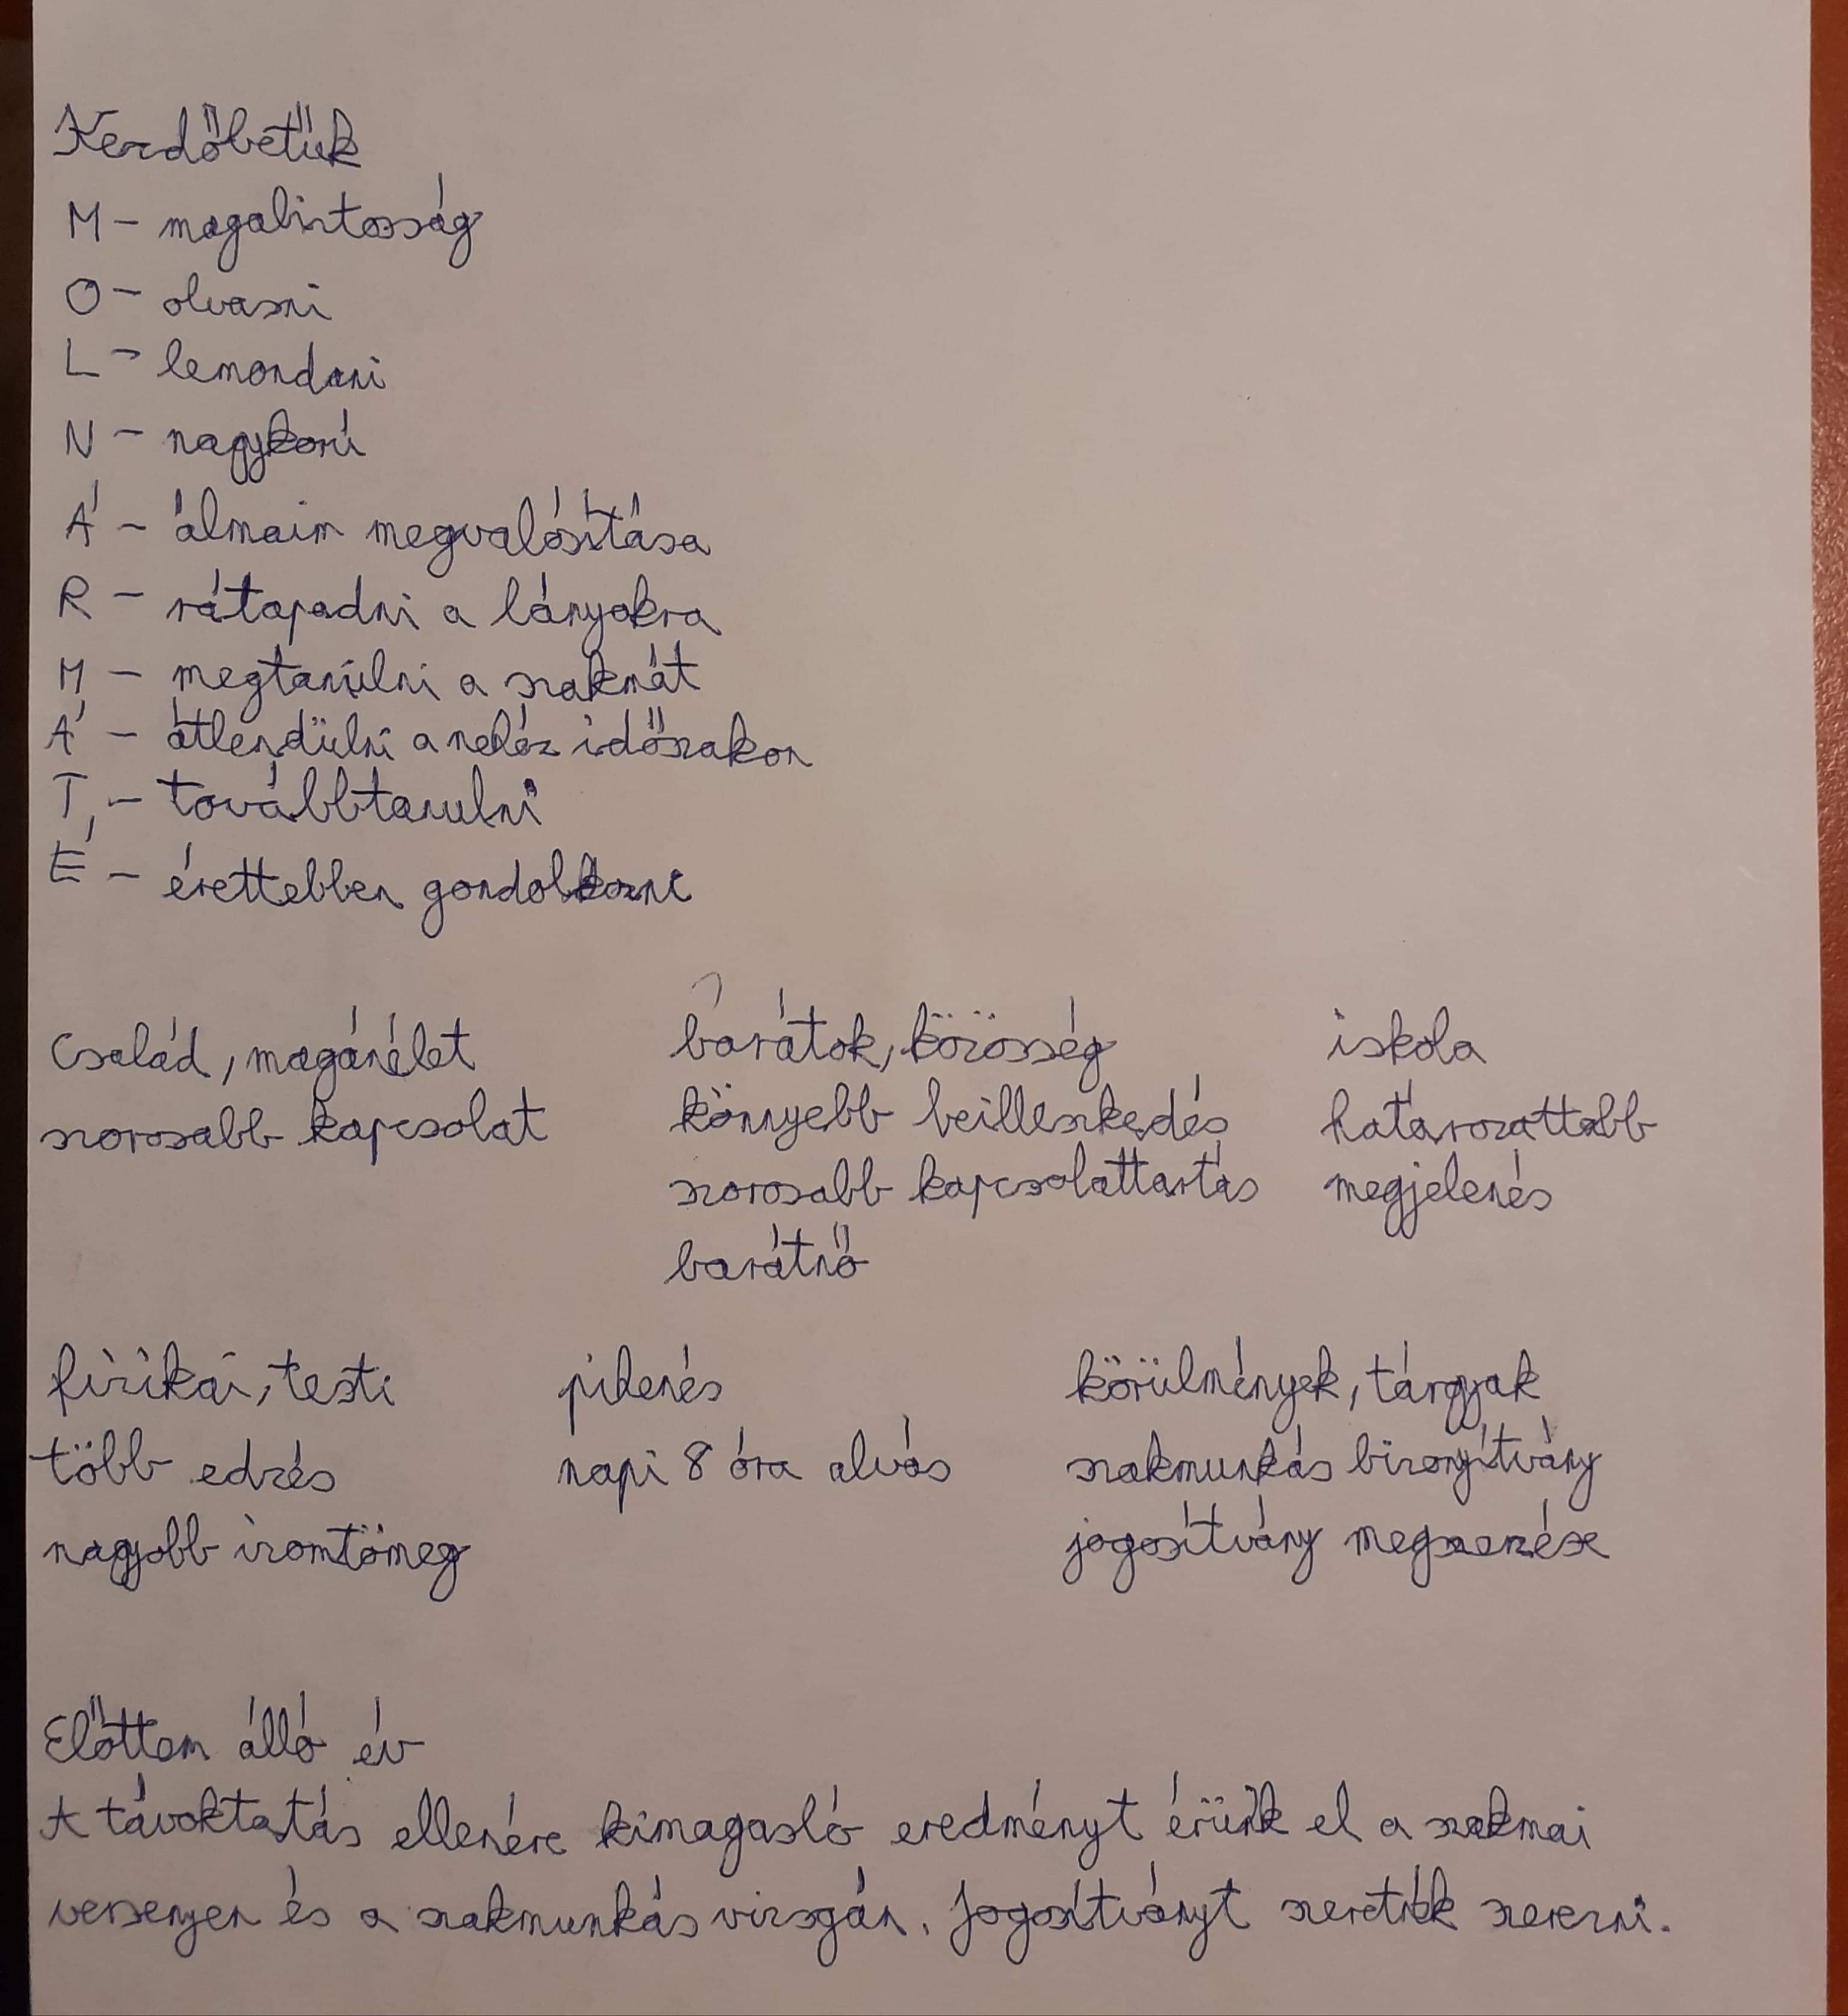 Kezdőbetűk
M - magabiztosság
O - olvasni
L - lemondani
N - nagykorú
Á - álmaim megvalósítása
R - rátapadni a lányokra
M - megtanulni a szakmát
Á - átlendülni a nehéz időszakon
T - továbbtanulni
É - érettebben gondolkozni
Család, magánélet
szorosabb kapcsolat
barátok, közösség
könnyebb beilleszkedés
szorosabb kapcsolattartás
barátnő
iskola
határozottabb
megjelenés
fizikai, testi
több edzés
nagyobb izomtömeg
pihenés
napi 8 óra alvás
körülmények, tárgyak
szakmunkás bizonyítvány
jogosítvány megszerzése
Előttem álló év
A távoktatás ellenére kimagasló eredményt érünk el a szakmai
versenyen és a szakmunkás vizsgán. Jogosítványt szeretnék szerezni.